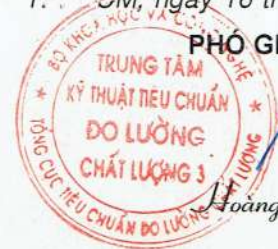 CM, ngày
PHÓ
BỘ KHOA HỌC VÀ CÔNG NGHỆ
TRUNG TÂM
KỸ THUẬT TIÊU CHUẨN
ĐO LƯỜNG
CHẤT LƯỢNG 3
TỔNG CỤC TIÊU CHUẨN ĐO LƯỜNG CHẤT LƯỢNG
Hoàng